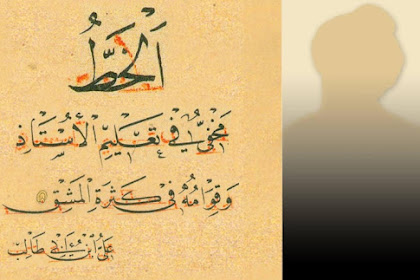 اَلْخَطُّ
مَخْفِيٌّ فِي تَعْلِيمِ الْأُسْتَاذِ
وَقِوَامُهُ فِي كَثْرَةِ الْمَشْقِ
عَلِيُّ ابْنُ أَبِي طَالِبْ